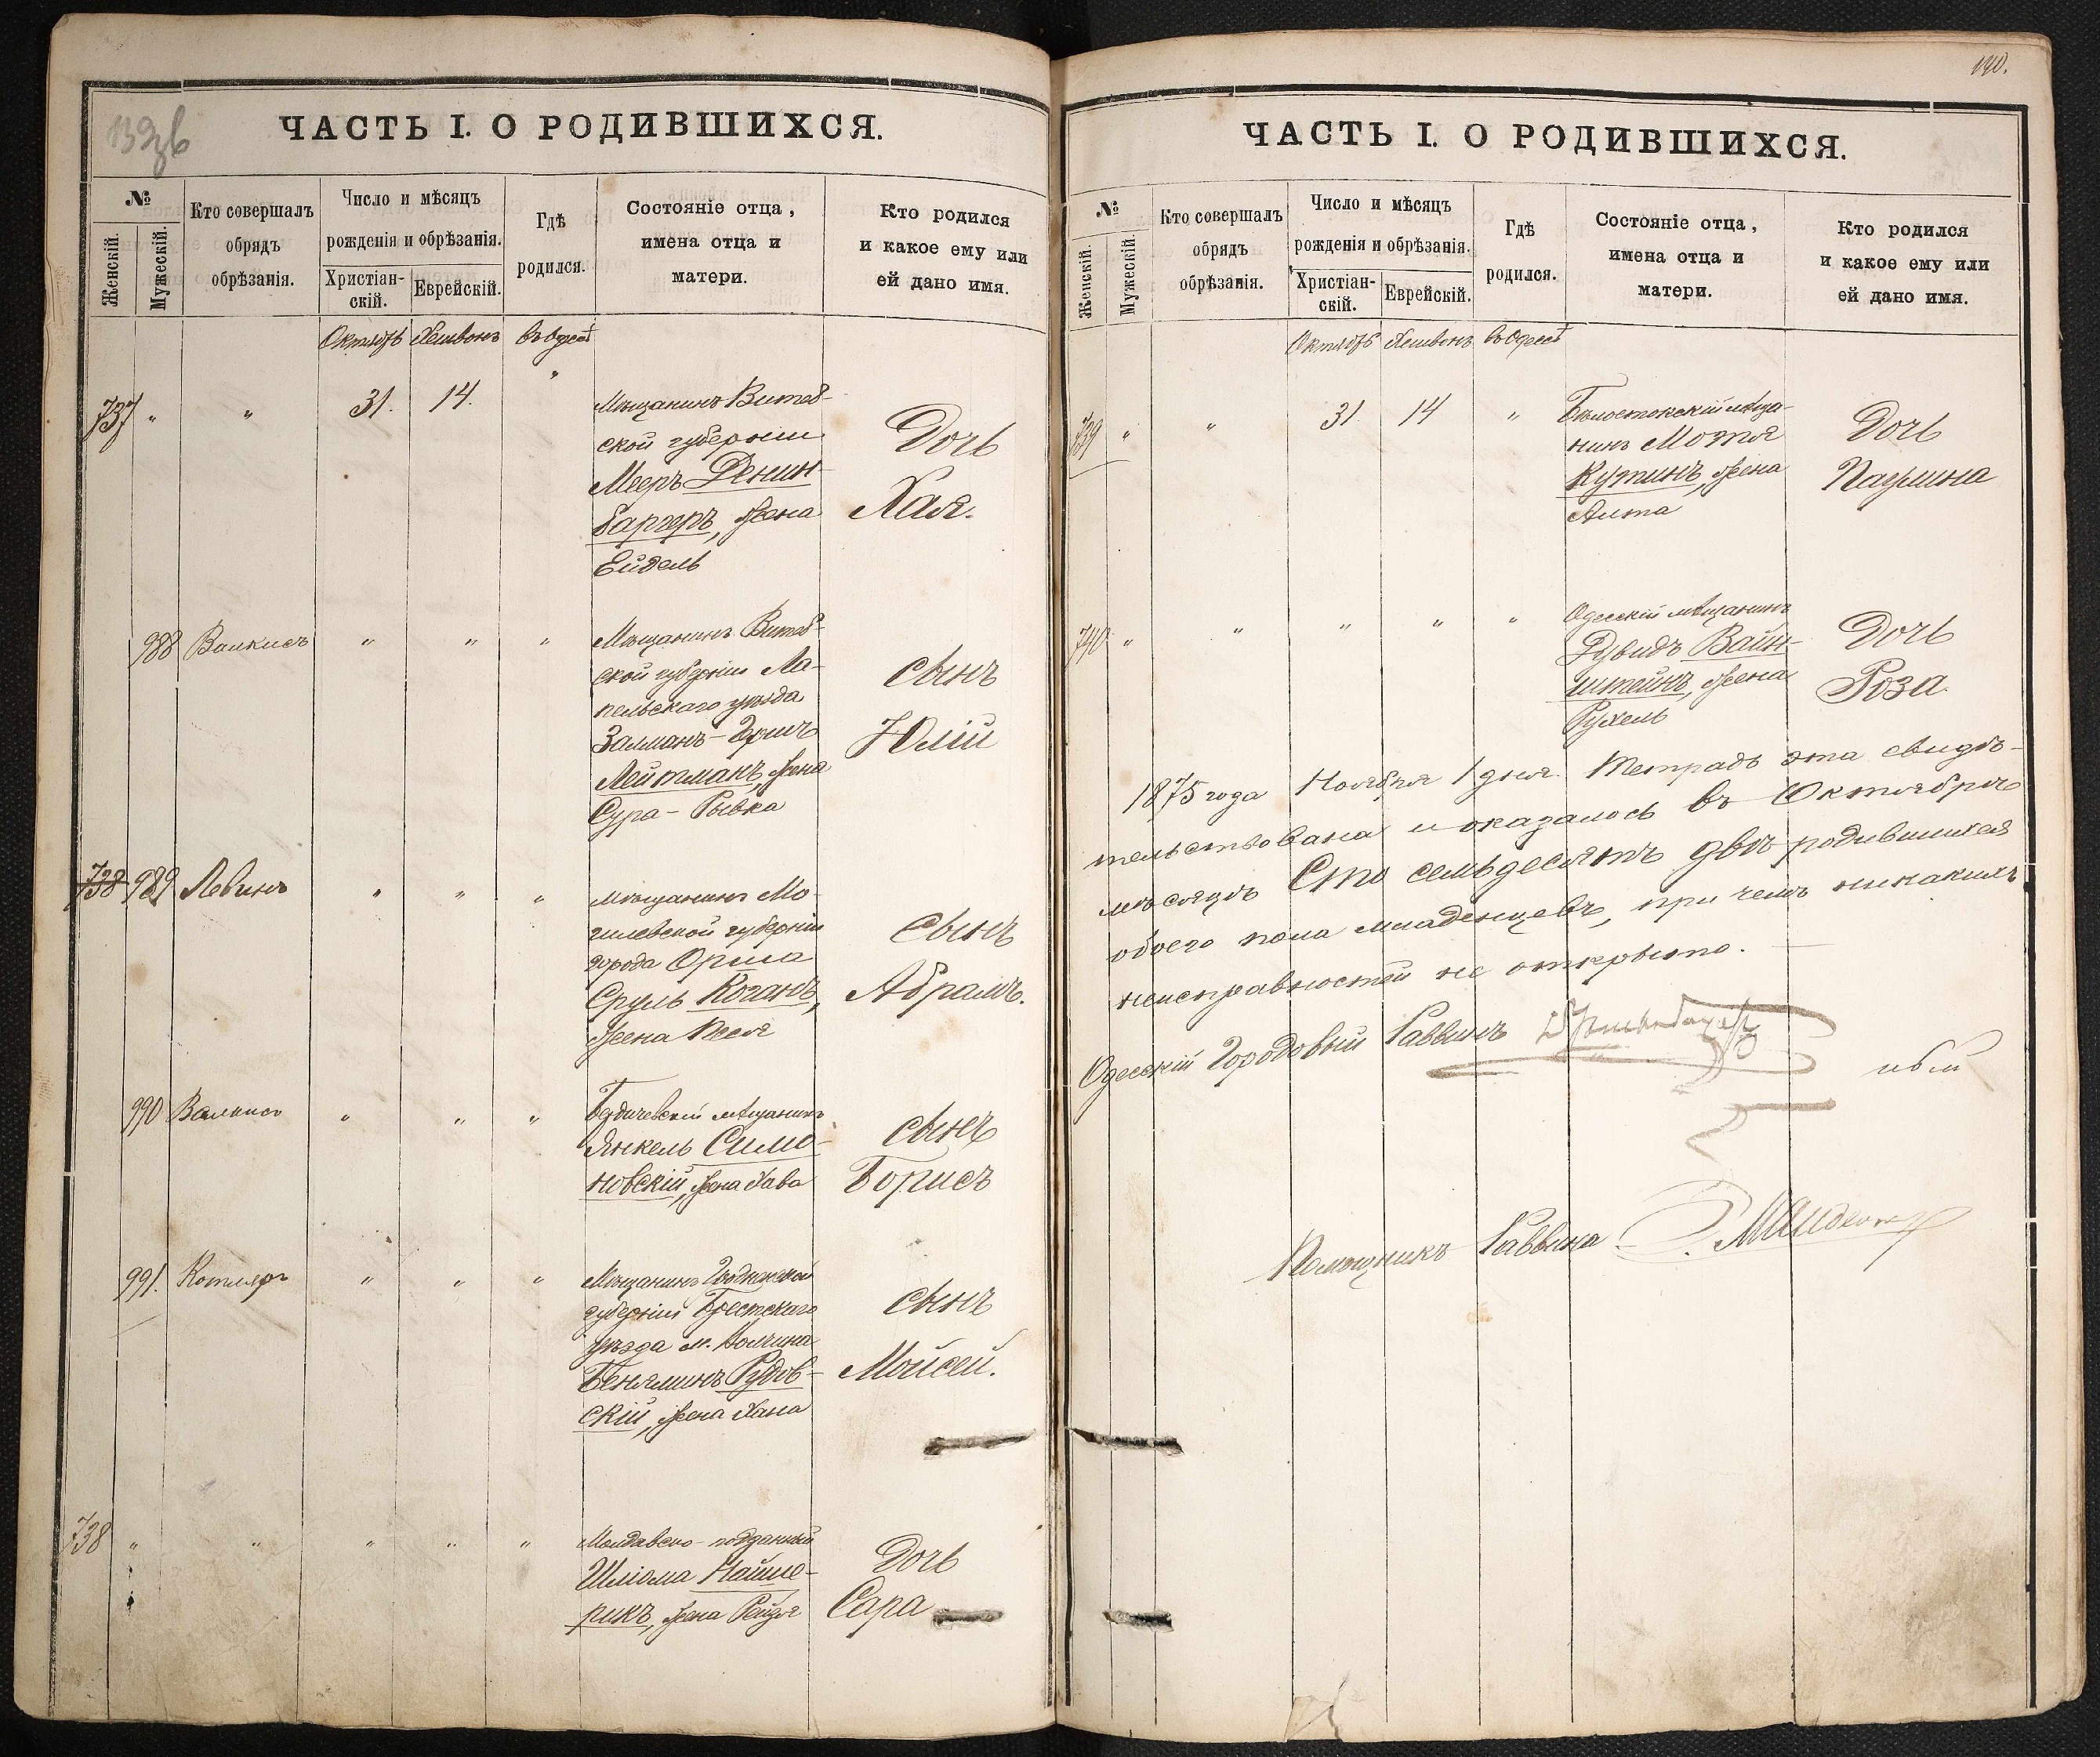 ЧАСТЬ I. О РОДИВШИХСЯ.
№
Женскій.
Мужескій.
Кто совершалъ
обрядъ
обрѣзанія.
Число и мѣсяцъ
рожденія и обрѣзанія.
Христіан-
скій.
Еврейскій.
Гдѣ
родился.
Состояніе отца,
имена отца и
матери.
Кто родился
и какое ему или
ей дано имя.
Октябрь Хешвонъ въ Одессѣ
737 " " 31. 14. "
Мѣщанинъ Витеб-
ской губерніи
Мееръ Денин-
баргеръ, жена
Ейдель
Дочь
Хая.
988 Валкисъ " " "
Мѣщанинъ Витеб-
ской губерніи Ле-
пельскаго уѣзда
Залманъ-Гришъ
Лейтманъ, жена
Сура-Рывка
сынъ
Юлій
738 989 Левинъ " " "
мѣщанинъ Мо-
гилевской губерніи
города Орша
Сруль Коганъ,
жена Песя
сынъ
Абрамъ.
990 Валкисъ " " "
Бердичевскій мѣщанинъ
Янкель Симо-
новскій, жена Хава
сынъ
Борисъ
991. Котляръ " " "
Мѣщанинъ Гродненской
губерніи Брестскаго
уѣзда м. Волчина
Беньяминъ Рудов-
скій, жена Хана
сынъ
Мойсей.
738 " " " " "
Молдавско-подданный
Шліома Найше-
рикъ, жена Рейзя
Дочь
Сара
140.
ЧАСТЬ I. О РОДИВШИХСЯ.
№
Женскій.
Мужескій.
Кто совершалъ
обрядъ
обрѣзанія.
Число и мѣсяцъ
рожденія и обрѣзанія.
Христіан-
скій.
Еврейскій.
Гдѣ
родился.
Состояніе отца,
имена отца и
матери.
Кто родился
и какое ему или
ей дано имя.
Октябрь Хешвонъ въ Одессѣ
739 " " 31 14 "
Бѣлостокскій мѣща-
нинъ Мотя
Кутинъ, жена
Алта
Дочь
Паулина
740 " " " " "
Одесскій мѣщанинъ
Рувидъ Вайн-
штейнъ, жена
Рухель
Дочь
Роза.
1875 года Ноября 1 дня. Тетрадь эта свидѣ-
тельствована и оказалось въ Октябрѣ
мѣсяцѣ Сто семьдесятъ двѣ родившихся
обоего пола младенцевъ, при чемъ никакихъ
неисправностей не открыто.
Одесскій Городовый Раввинъ
Помощникъ Раввина